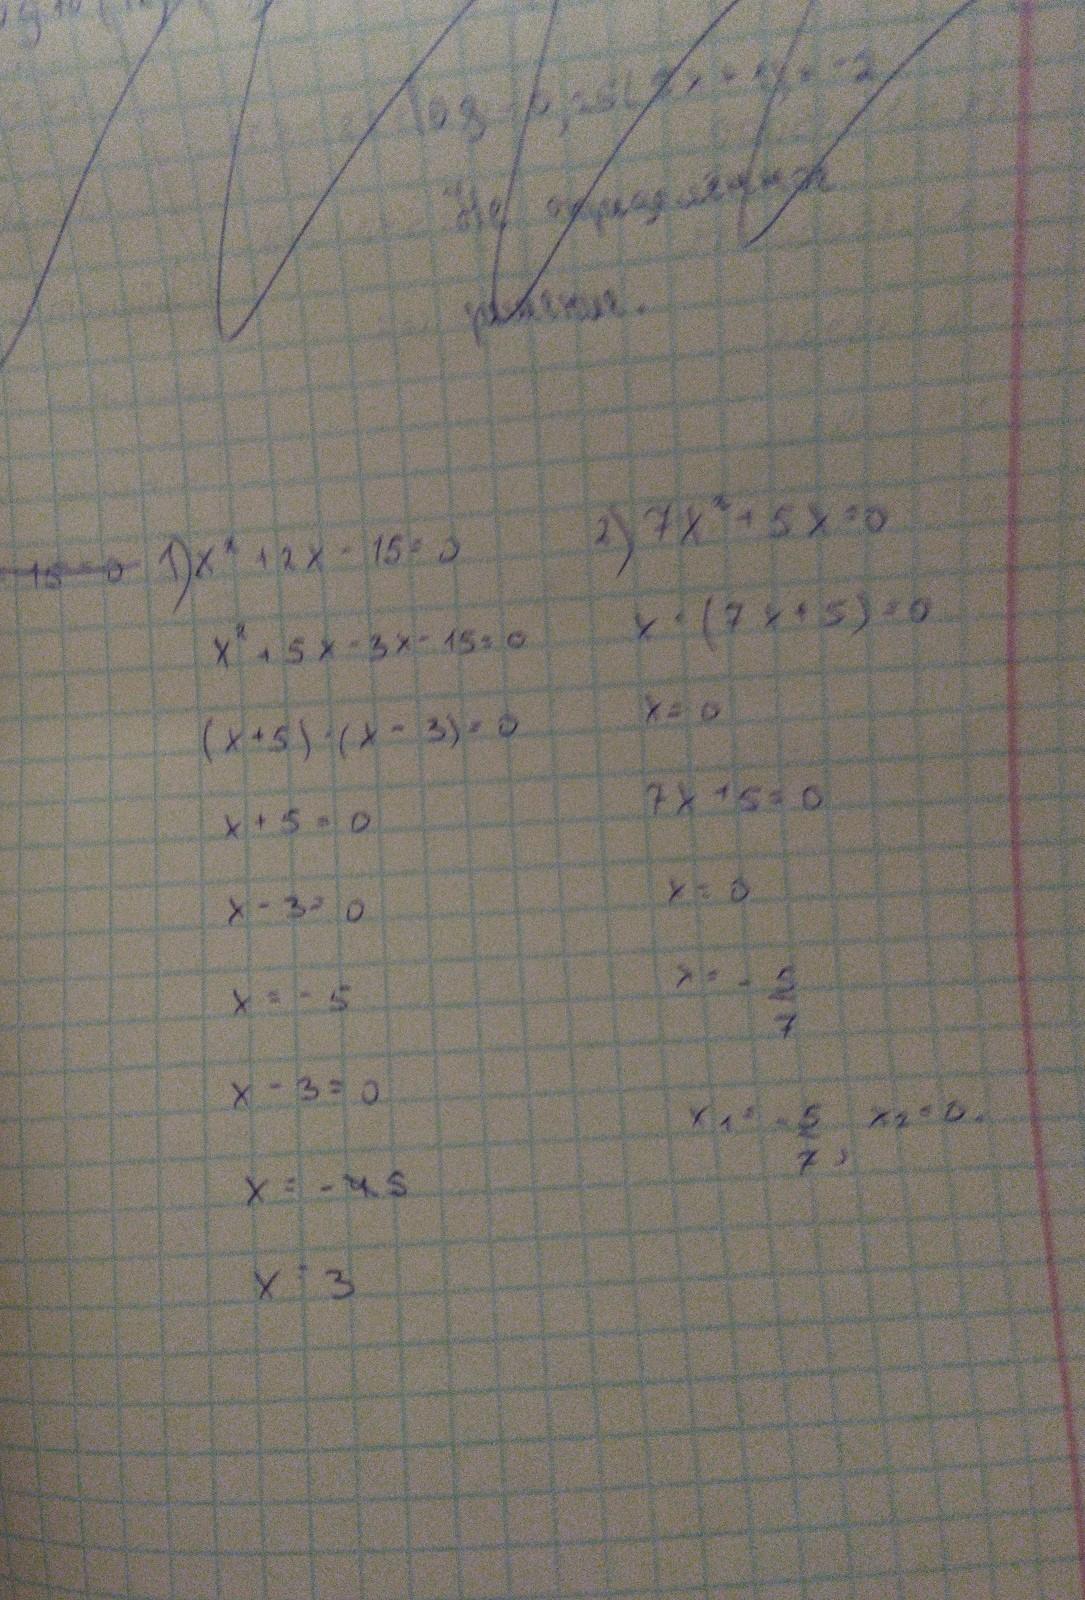 log - 0,25(2x + 1) = -2
Не
решения.
15 = 0
1) x² + 2x - 15 = 0
x² + 5x - 3x - 15 = 0
(x + 5) · (x - 3) = 0
x + 5 = 0
x - 3 = 0
x = - 5
x - 3 = 0
x = - 5
x = 3
2) 7x² + 5x = 0
x · (7x + 5) = 0
x = 0
7x + 5 = 0
x = 0
x = - 5/7
x₁ = - 5/7, x₂ = 0.